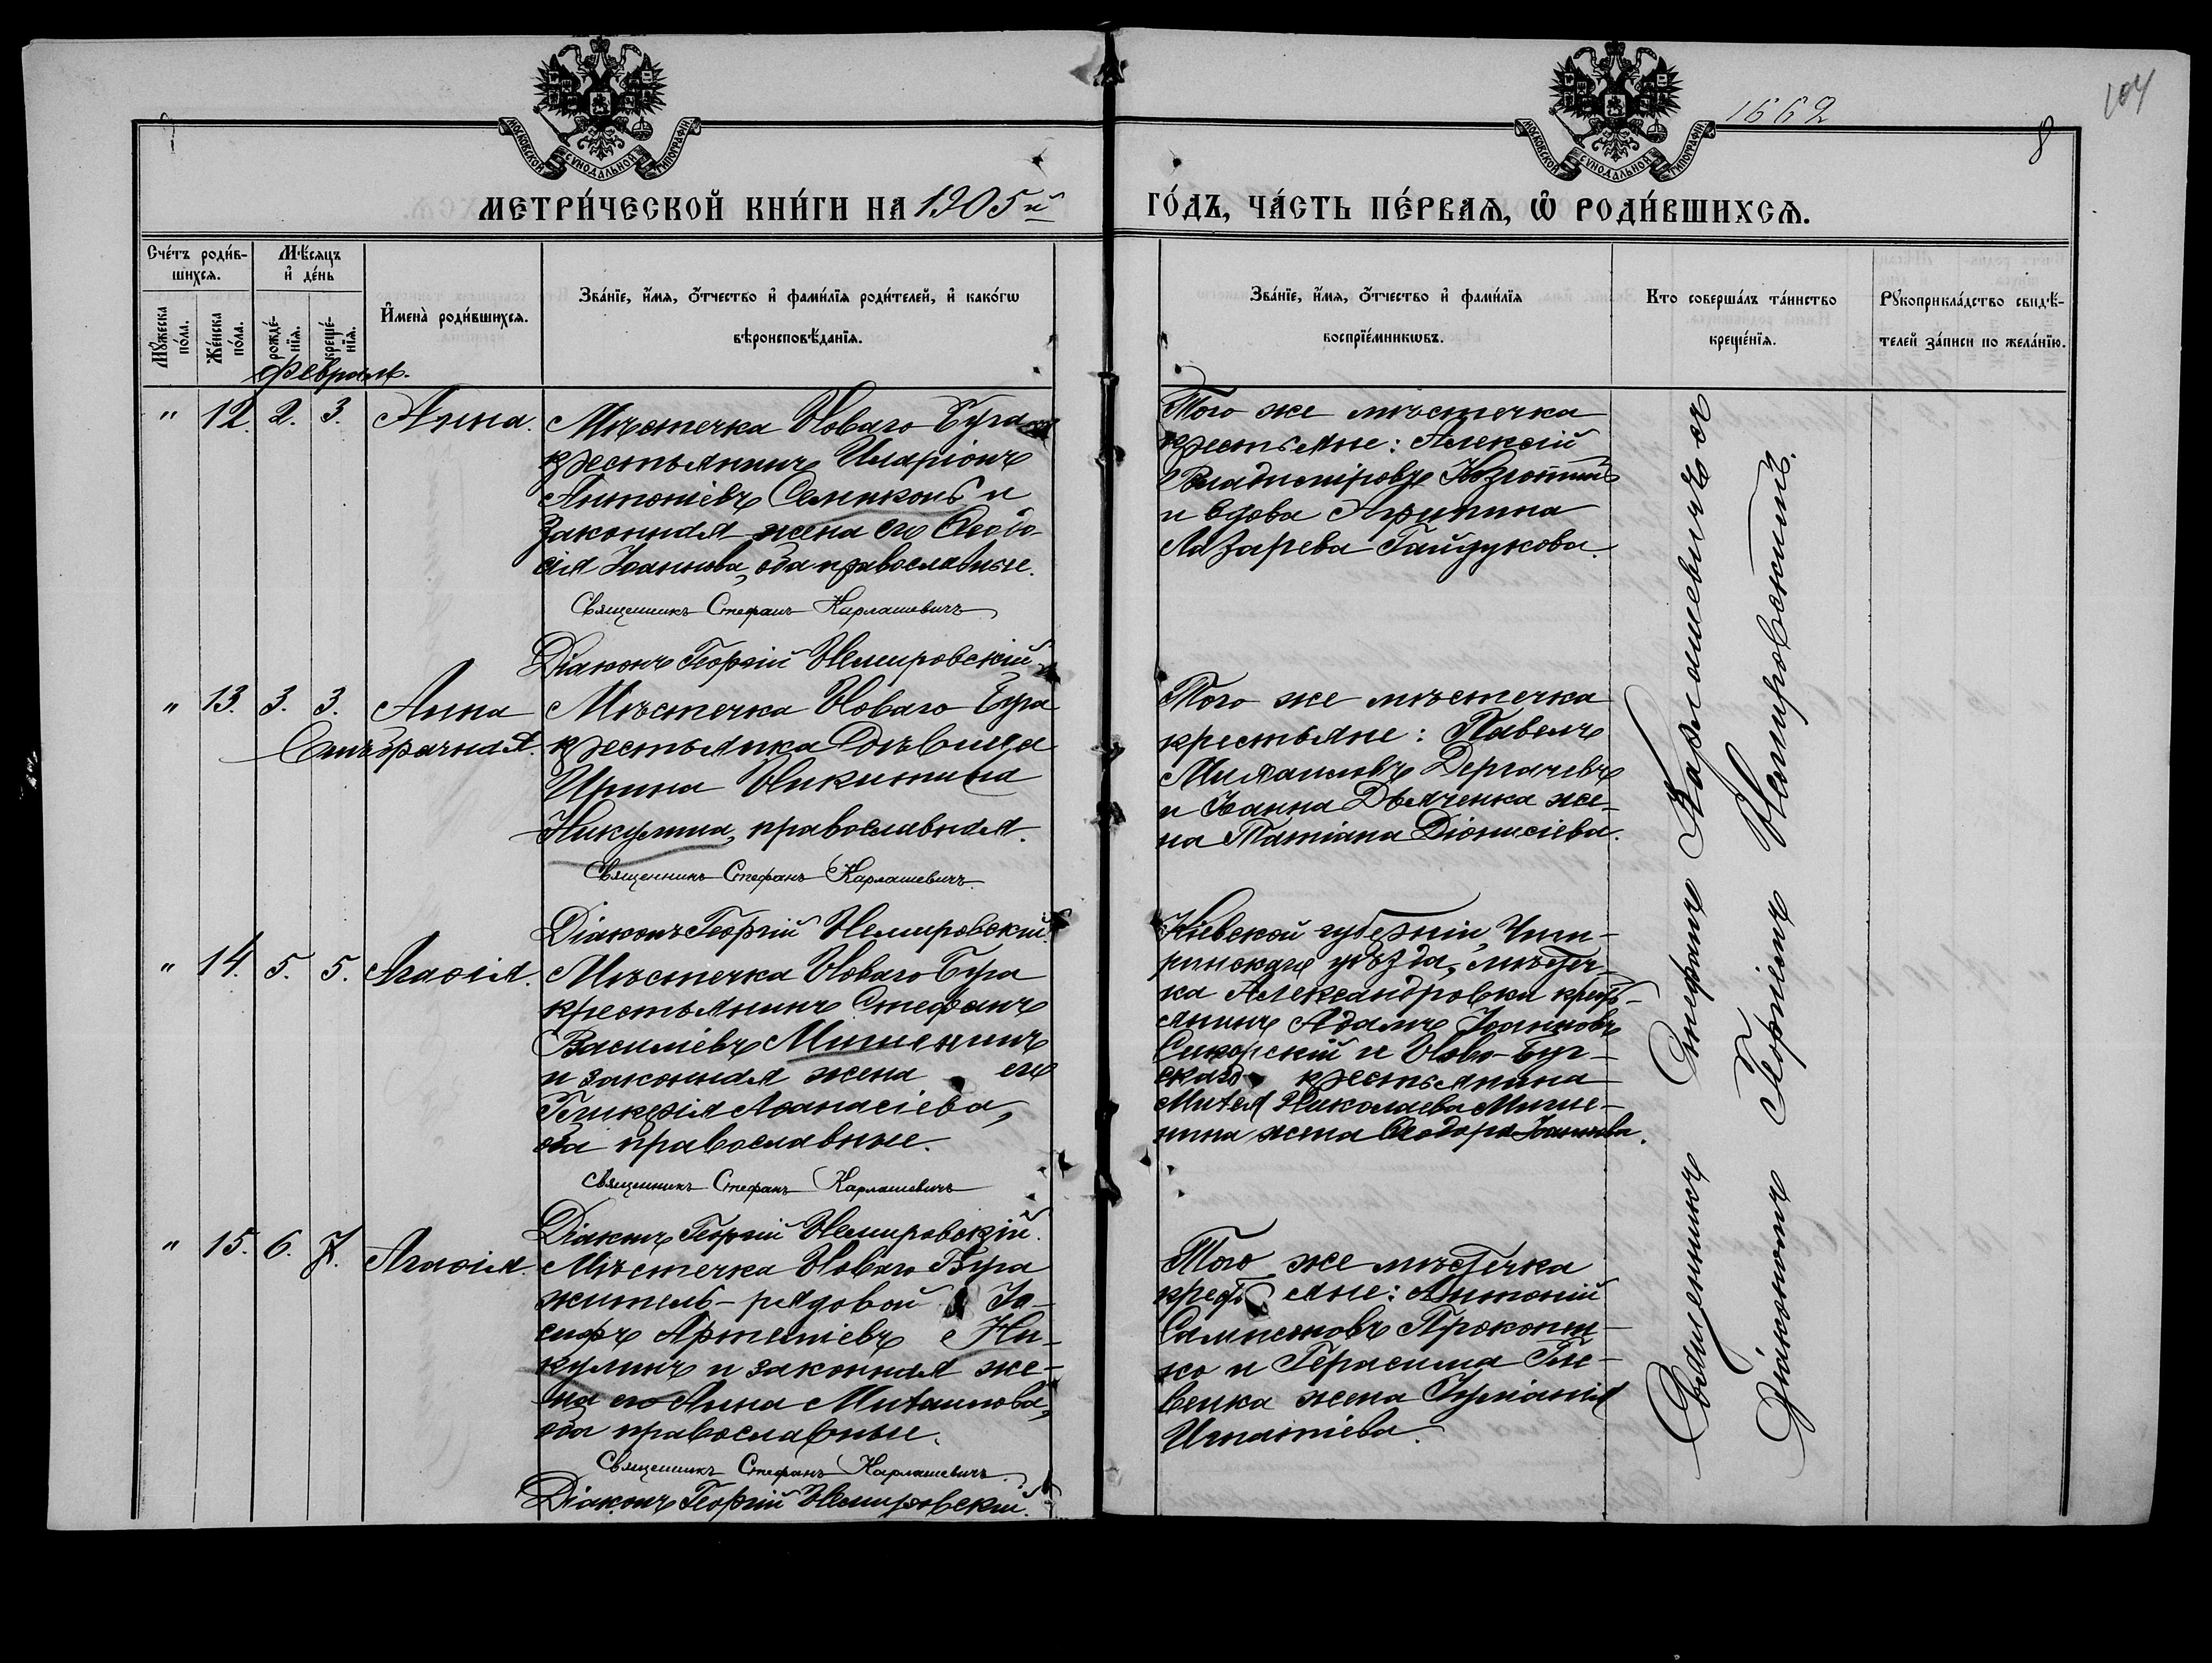 МОСКОВСКОЙ СѴНОДАЛЬНОЙ ТИПОГРАФІИ
МОСКОВСКОЙ СѴНОДАЛЬНОЙ ТИПОГРАФІИ
1662
104
8
МЕТРИ́ЧЕСКОЙ КНИ́ГИ НА 1905й
ГО́ДЪ, ЧА́СТЬ ПЕ́РВАѦ, Ѡ҆ РОДИ́ВШИХСѦ.
Сче́тъ роди́в-
шихсѧ.
Мꙋ́жеска по́ла.
Же́нска по́ла.
Мѣ́сѧцъ
и҆ де́нь
рожде́-
нїѧ.
креще́-
нїѧ.
И҆мена̀ роди́вшихсѧ.
Зва́нїе, и҆́мѧ, ѻ҆́тчество и҆ фами́лїѧ роди́телей, и҆ како́гѡ
вѣроисповѣ́данїѧ.
Зва́нїе, и҆́мѧ, ѻ҆́тчество и҆ фами́лїѧ
воспрїе́мникѡвъ.
Кто̀ соверша́лъ та́инство
креще́нїѧ.
Рꙋкоприкла́дство свидѣ́-
телей за́писи по жела́нїю.
Февраль.
" 12. 2. 3. Анна.
Мѣстечка Новаго Буга
крестьянинъ Иларіонъ
Антоніевъ Семиконь и
законная жена его Ѳеодо-
сія Іоаннова, оба православные.
Священникъ Стефанъ Карлашевичъ
Діаконъ Георгій Немировскій
Того же мѣстечка
крестьяне: Алексій
Владиміровъ
и вдова Агрипина
Лазарева Гайдукова.
" 13. 3. 3. Анна
Внѣбрачная.
Мѣстечка Новаго Буга
крестьянка дѣвица
Ирина Никитина
Никулина, православная.
Священникъ Стефанъ Карлашевичъ.
Діаконъ Георгій Немировскій.
Того же мѣстечка
крестьяне: Павелъ
Михаиловъ Дергачевъ
и Іоанна Дьяченка же-
на Татіана Діонисіева.
" 14. 5. 5. Агаѳія.
Мѣстечка Новаго Буга
крестьянинъ Стефанъ
Василіевъ Мишенинъ
и законная жена его
Гликерія Аѳанасіева,
оба православные.
Священникъ Стефанъ Карлашевичъ
Діаконъ Георгій Немировскій.
Кіевской губерніи, Чиги-
ринскаго уѣзда, мѣстеч-
ка Александровки крест-
янинъ Адамъ Іоанновъ
Сикорскій и Ново-Буг-
скаго крестьянина
Михея Николаева Мише-
нина жена Ѳеодора Іоаннова.
" 15. 6. 7. Агаѳія.
Мѣстечка Новаго Буга
житель-рядовой Іо-
сифъ Артеміевъ Ни-
кулинъ и законная же-
на его Анна Михаилова,
оба православные.
Священникъ Стефанъ Карлашевичъ
Діаконъ Георгій Немировскій.
Того же мѣстечка
крестьяне: Антоній
Сампсоновъ Прокопен-
ко и Герасима Гле-
венка жена Іуліанія
Игнатіева.
Священникъ Стефанъ Карлашевичъ съ
Діакономъ Георгіемъ Немировскимъ.